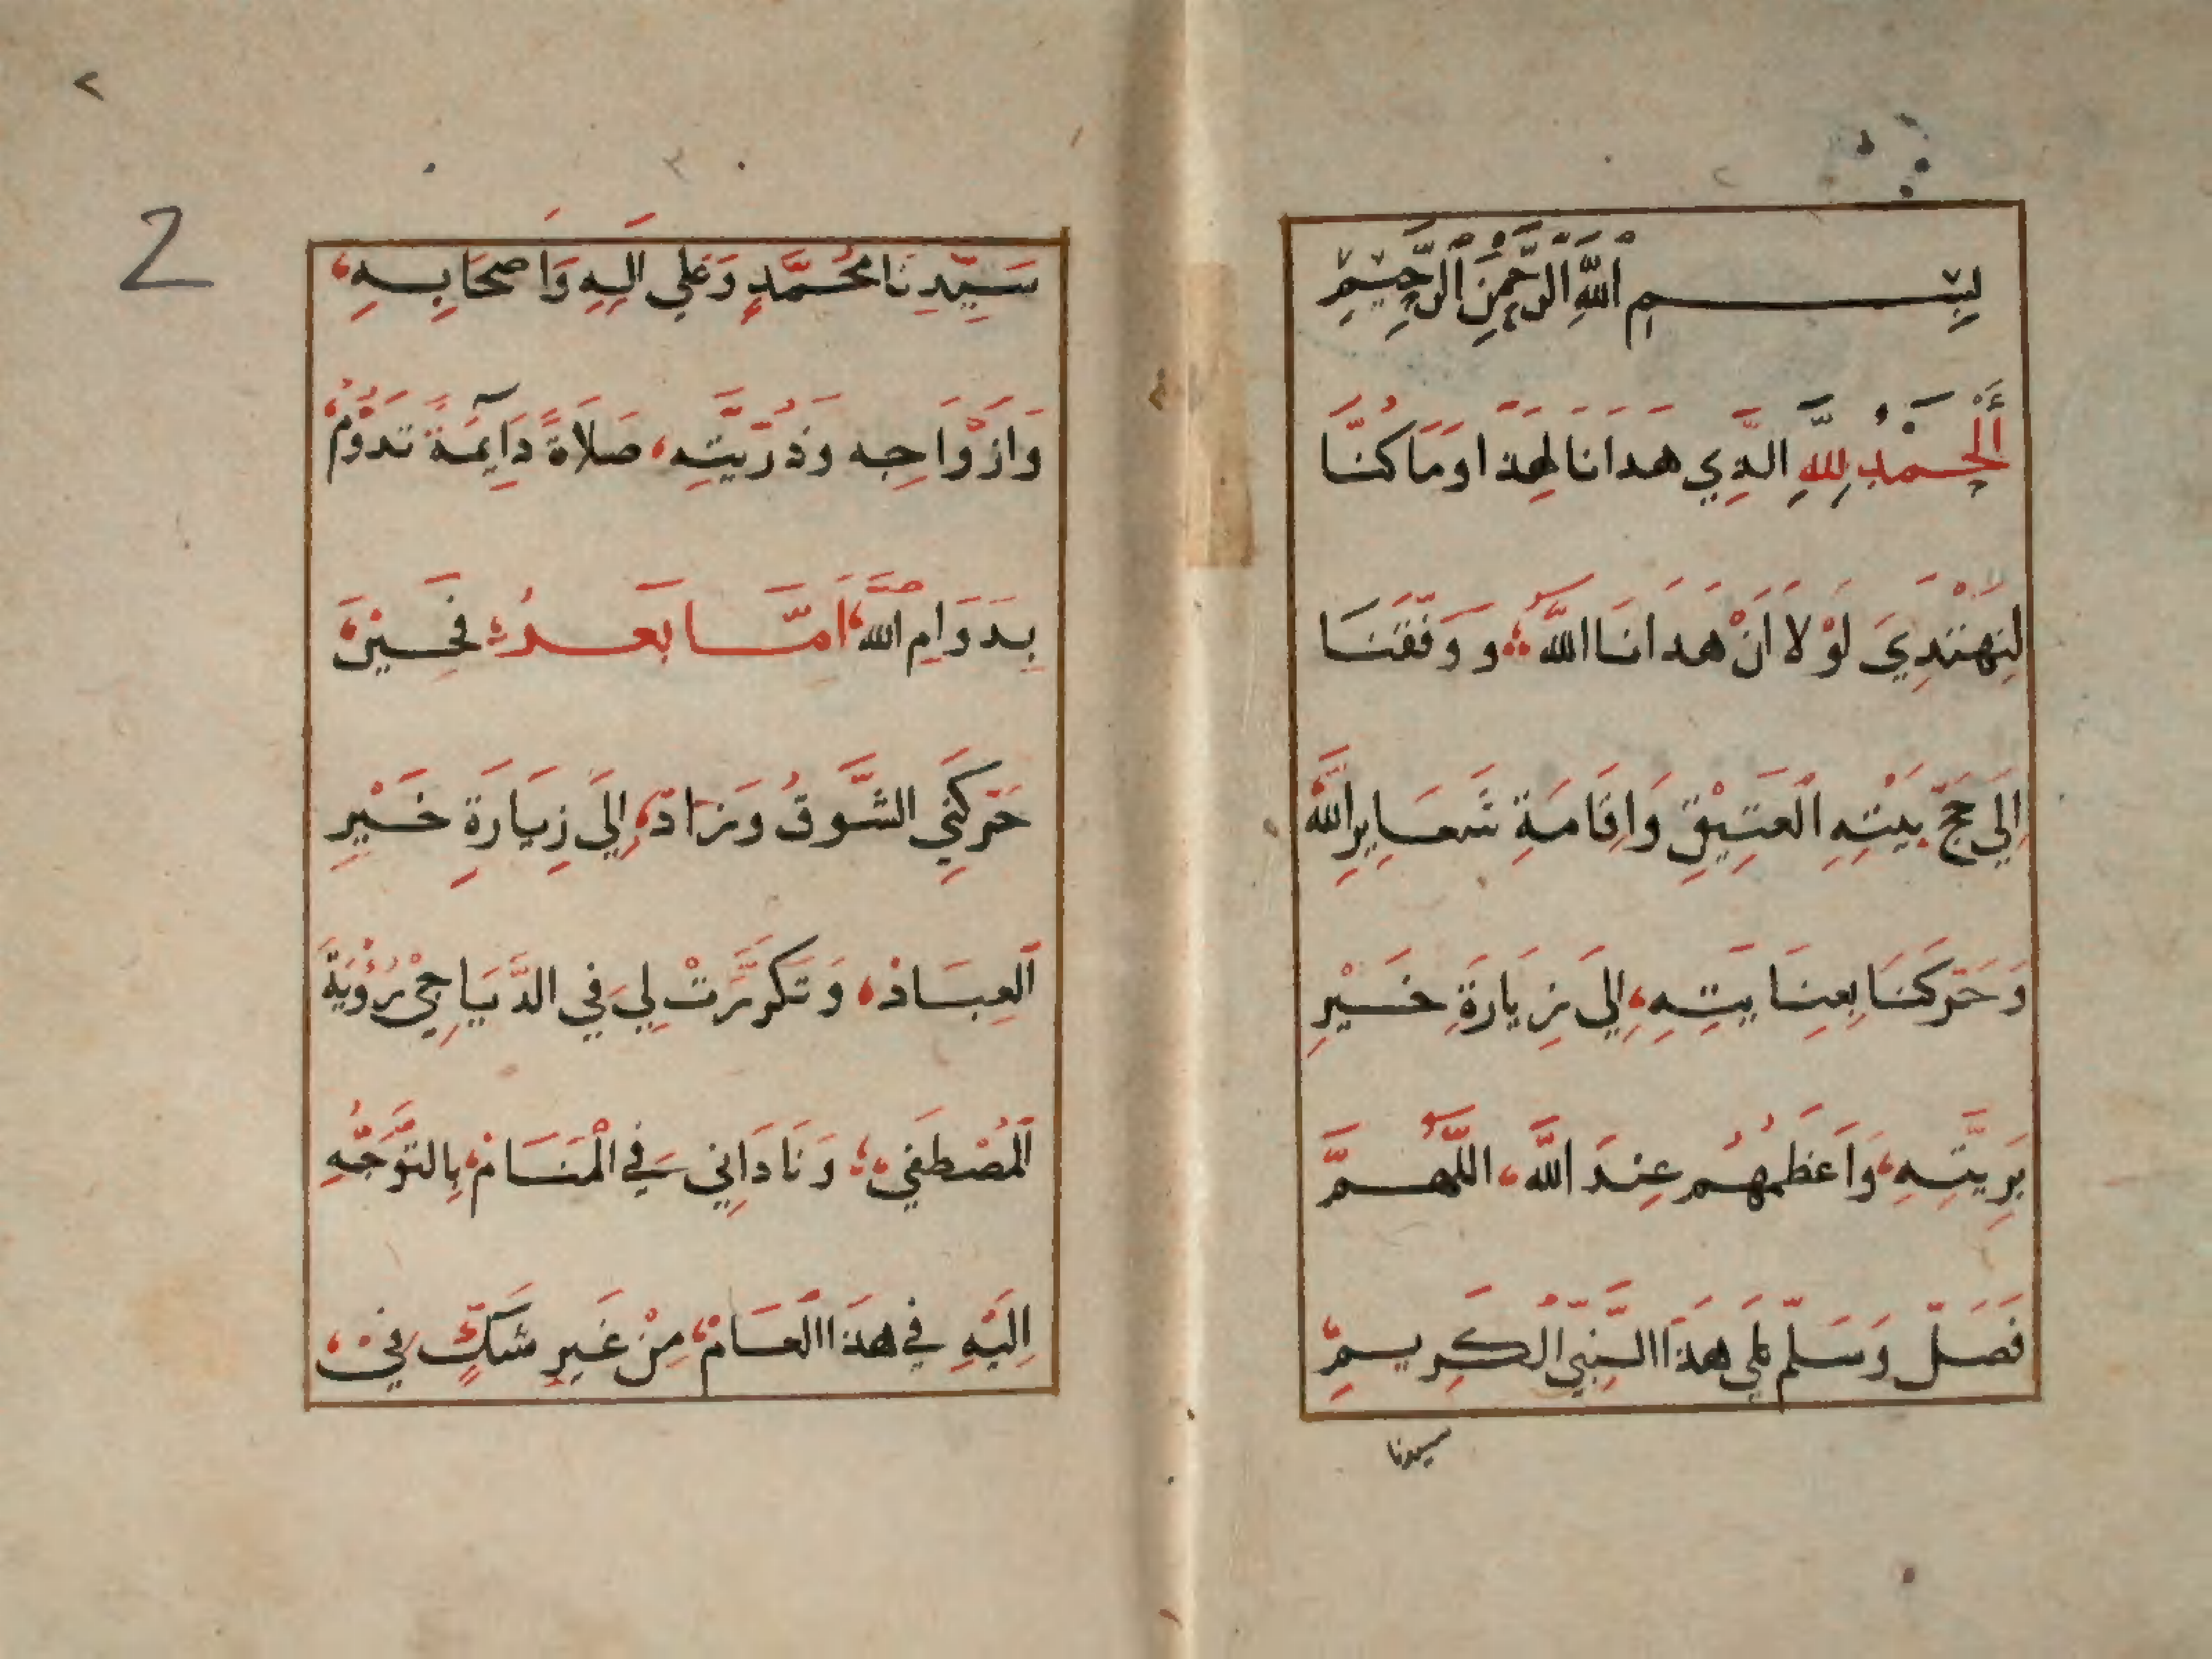 بِسْمِ اللَّهِ الرَّحْمَنِ الرَّحِيمِ
أَلْحَمْدُ لِلَّهِ الَّذِي هَدَانَا لِهَذَا وَمَا كُنَّا
لِنَهْتَدِيَ لَوْلَا أَنْ هَدَانَا اللَّهُ ، وَوَفَّقَنَا
إِلَى حَجِّ بَيْتِهِ الْعَتِيْقِ وَاِقَامَةِ شَعَايِرِ اللَّهِ
وَحَرَّكَنَا بِعِنَايَتِهِ، إِلَى زِيَارَةِ خَيْرِ
بَرِيَّتِهِ، وَاَعْظَمِهُم عِنْدَ اللَّه، اللَّهُمَّ
فَصَلِّ وَسَلِّم عَلَى هَذَا النَّبِيِّ الْكَرِيمِ
سيدنا
سَيِّدِنَا مُحَمَّدٍ وَعَلَى اَلِهِ وَاَصْحَابِهِ،
وَازْوَاجِه وَذُرِّيَّتِه، صَلَاةً دَايِمَةً تَدُوْمُ
بِدَوَامِ اللَّه، اَمَّا بَعْدُ، فَحِيْنَ
حَرَّكَنِي الشَّوقُ وَزَاد، إِلَى زِيَارَةِ خَيْرِ
الْعِبَادْ، وَتَكَرَّرَتْ لِي فِي الدُّيَاجِيْ رُؤْيَةُ
الْمُصْطَفَى، وَنَادَانِي فِي الْمَنَامْ، بِالتَّوَجُّهِ
اِلَيْهِ فِي هَذَا الْعَامْ، مِنْ غَيرِ شَكٍّ فِي،
2